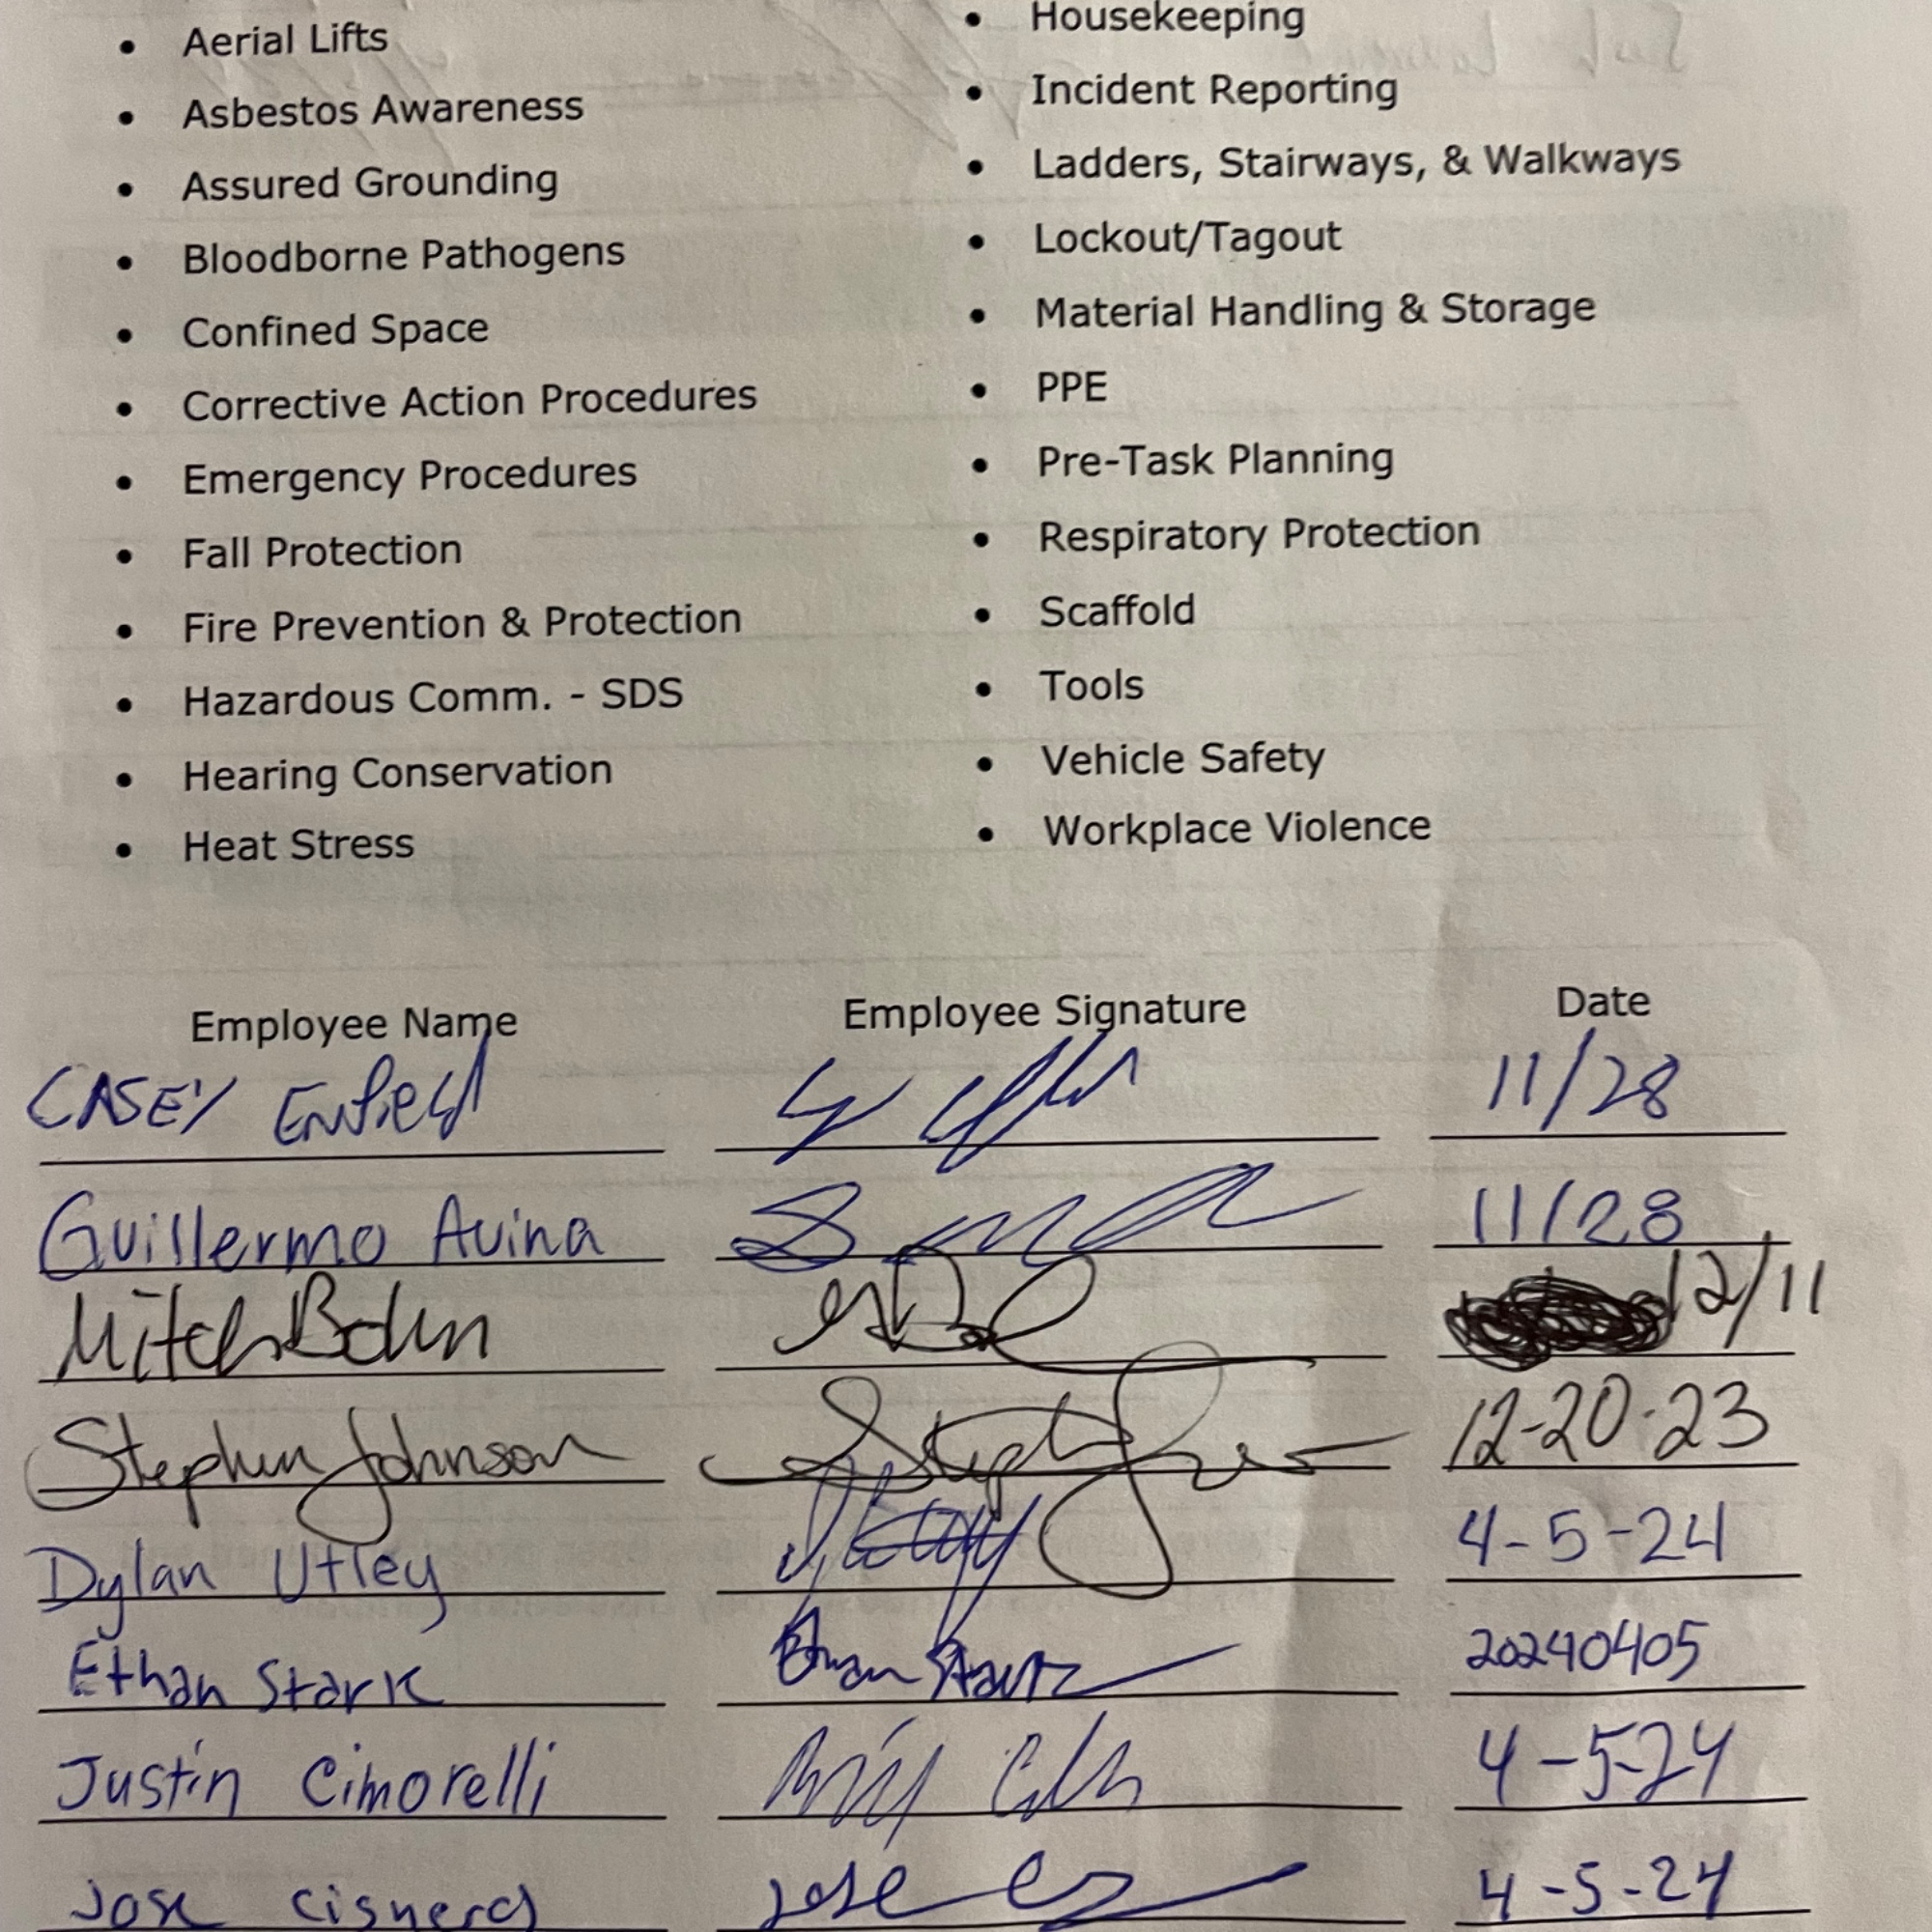 Aerial Lifts
Asbestos Awareness
Assured Grounding
Bloodborne Pathogens
Confined Space
Corrective Action Procedures
Emergency Procedures
Fall Protection
Fire Prevention & Protection
Hazardous Comm. - SDS
Hearing Conservation
Heat Stress
Housekeeping
Incident Reporting
Ladders, Stairways, & Walkways
Lockout/Tagout
Material Handling & Storage
PPE
Pre-Task Planning
Respiratory Protection
Scaffold
Tools
Vehicle Safety
Workplace Violence
Employee Name Employee Signature Date
CASEY Enfield 11/28
Guillermo Avina 11/28
Mitch Bohn 12/11
Stephen Johnson 12-20-23
Dylan Utley 4-5-24
Ethan Stark Ethan Stark 20240405
Justin Cimorelli 4-5-24
Jose Cisneros Jose 4-5-24